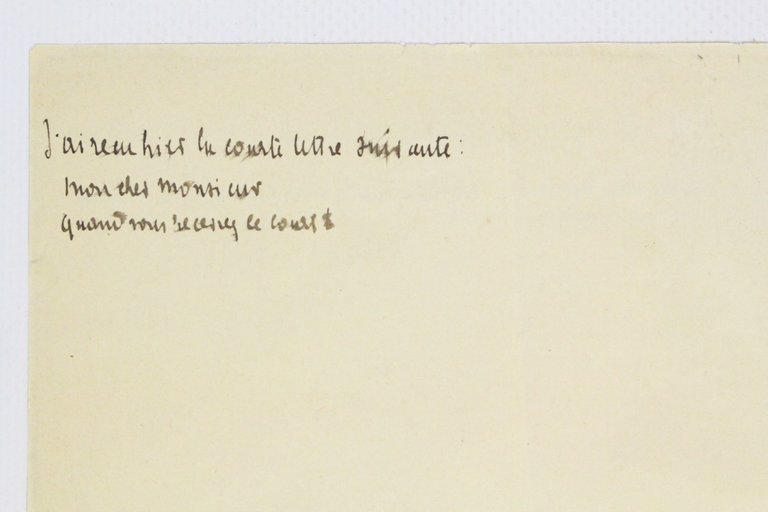 J'ai recu hier la courte lettre suivante :
mon cher monsieur
quand vous recevrez ce court